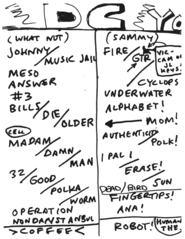 DC
(WHAT NOT)
JOHNNY/MUSIC JAIL
MESO
ANSWER
#3
BILLS/DIE/OLDER
CELL
MADAM/DAMN/MAN
32/GOOD/POLKA/WORM
OPERATION
NONDANSTANBUL
>COFFEE<
(SAMMY)
FIRE/GTR.
VIC-
CAM OF
JL
HOUS!
CYCLOPS
UNDERWATER
ALPHABET!
MOM!
AUTHENTICITY
POLK!
I PAL!
ERASE!
SUN
DEAD/BIRD
FINGERTIPS!
ANA!
ROBOT!
(HUMAN
THE